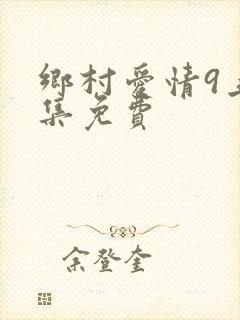 鄉村愛情9
集免費
余登奎